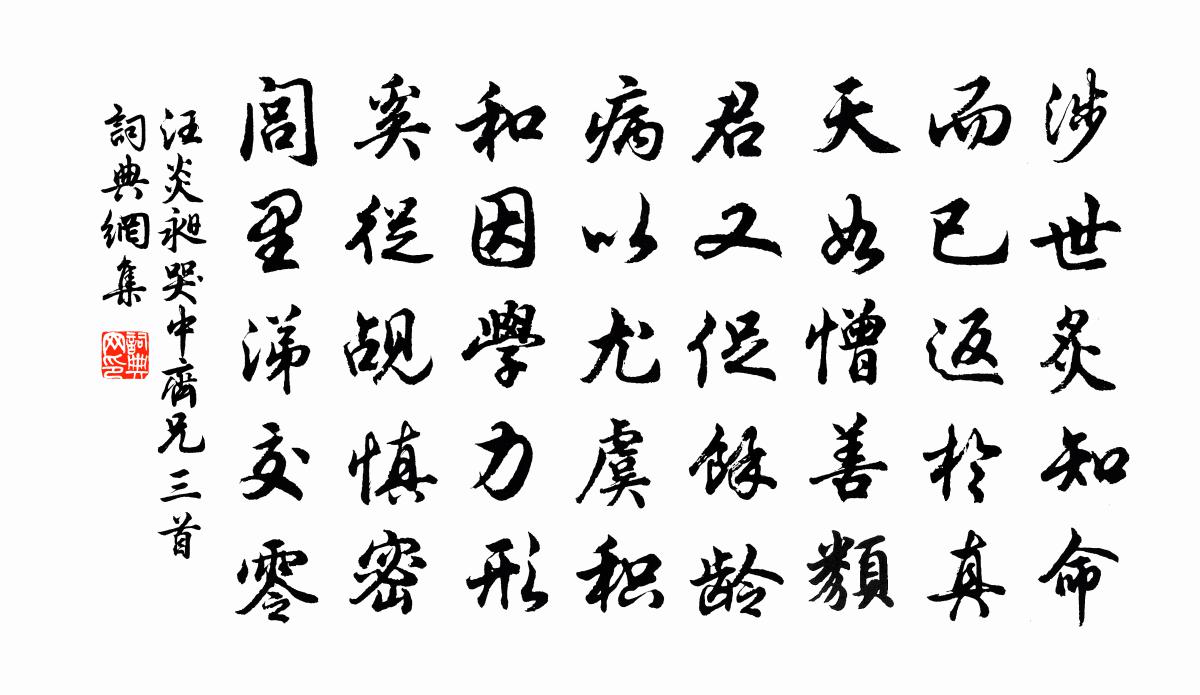 涉世炙知命
而已返於真
天如憎善類
君又促餘龄
病以尤虞积
和因學力形
奚從觇慎密
閭里涕交零
汪炎昶哭中齋兄三首
詞典網集
詞典
网印